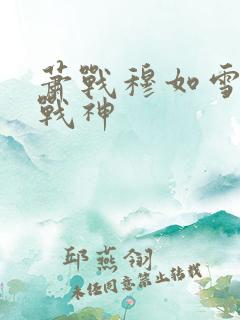 蕭戰穆如雪
戰神
邱燕翎
未经同意禁止转载